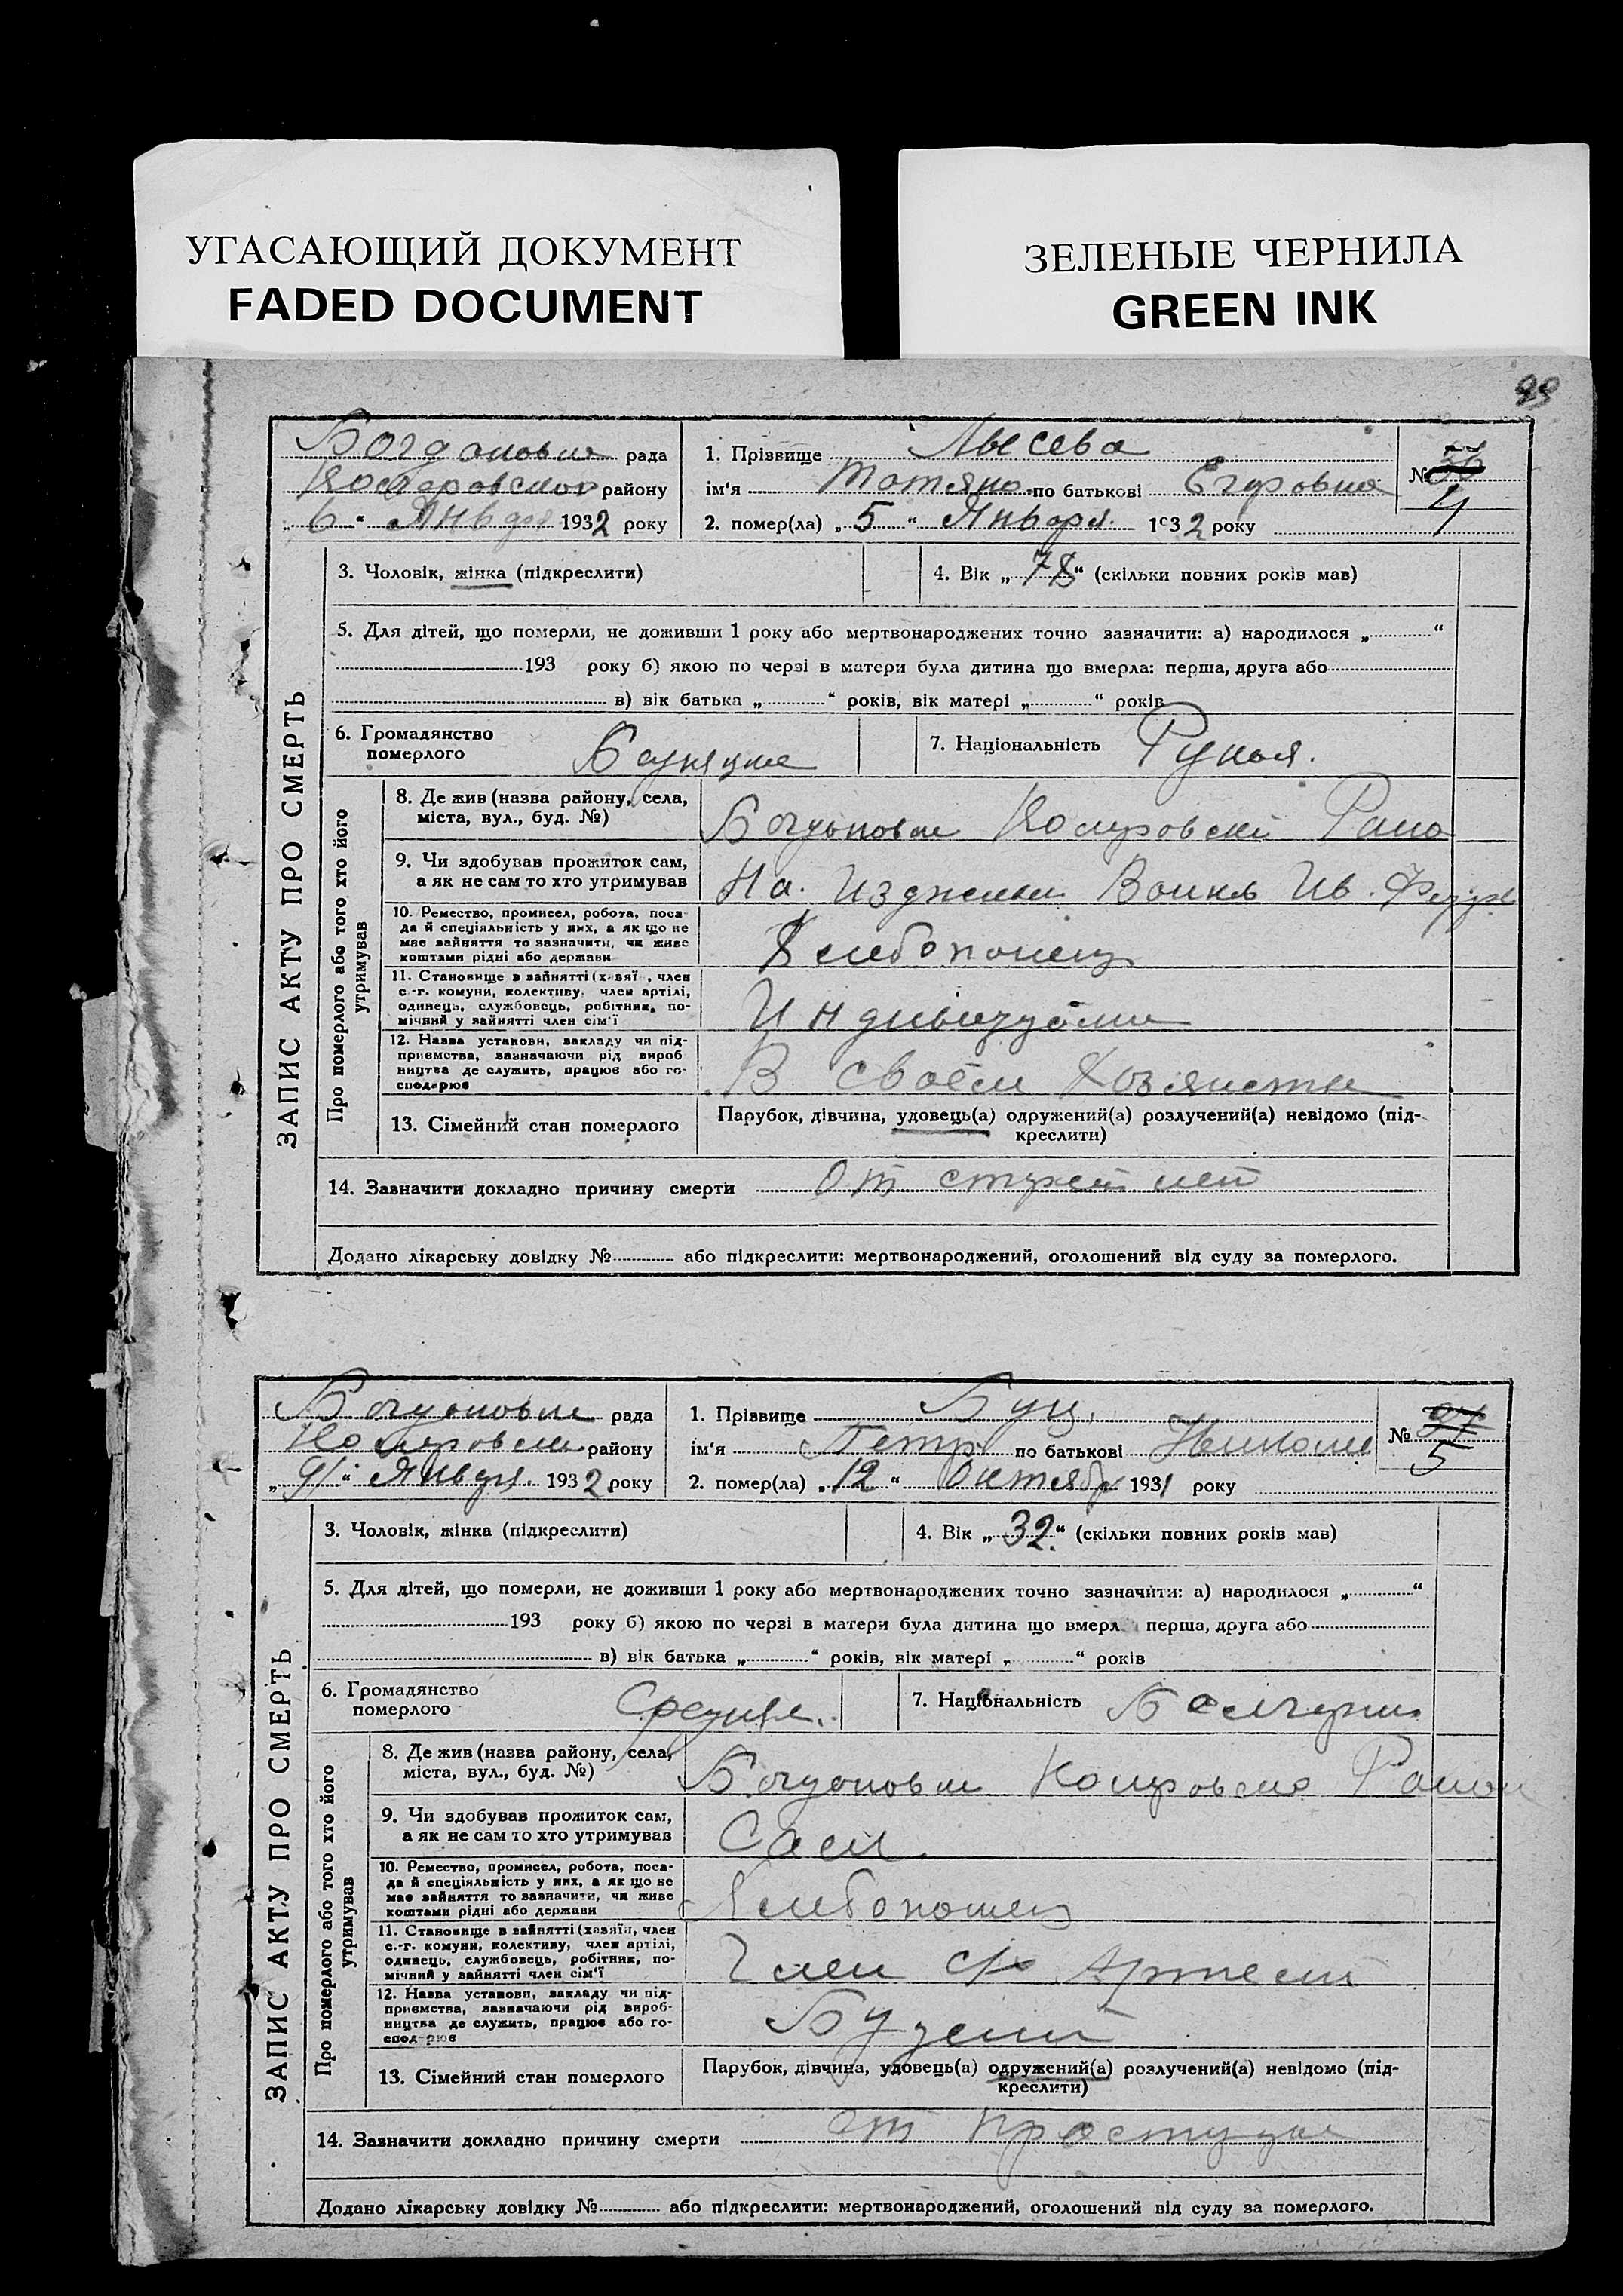 УГАСАЮЩИЙ ДОКУМЕНТ
FADED DOCUMENT
ЗЕЛЕНЫЕ ЧЕРНИЛА
GREEN INK
99
ЗАПИС АКТУ ПРО СМЕРТЬ
рада
району
„6“ Января 1932 року
1. Прізвище Лысева
ім‘я Татяна по батькові Егоровна
2. помер(ла) „5“ Января 1932 року
№ 56 4
3. Чоловік, жінка (підкреслити)
4. Вік „78“ (скільки повних років мав)
5. Для дітей, що померли, не доживши 1 року або мертвонароджених точно зазначити: а) народилося „ “
193 року б) якою по черзі в матери була дитина що вмерла: перша, друга або
в) вік батька „ “ років, вік матері „ “ років
6. Громадянство
померлого
7. Національність
Про померлого або того хто його
утримував
8. Де жив (назва району, села,
міста, вул., буд. №)
9. Чи здобував прожиток сам,
а як не сам то хто утримував
На
10. Ремество, промисел, робота, поса-
да й спеціяльність у них, а як що не
має зайняття то зазначити, чи живе
коштами рідні або держави
11. Становище в зайнятті (хазяї , член
с.-г. комуни, колективу, член артілі,
одинець, службовець, робітник, по-
мічний у зайнятті член сім‘ї
12. Назва установи, закладу чи під-
приємства, зазначаючи рід вироб
ництва де служить, працює або го-
сподарює
В своем
13. Сімейний стан померлого
Парубок, дівчина, удовець(а) одружений(а) розлучений(а) невідомо (під-
креслити)
14. Зазначити докладно причину смерти От
Додано лікарську довідку № або підкреслити: мертвонароджений, оголошений від суду за померлого.
ЗАПИС АКТУ ПРО СМЕРТЬ
рада
району
Января 1932 року
1. Прізвище Буц
ім‘я Петр по батькові
2. помер(ла) „12“ Октября 1931 року
№ 5
3. Чоловік, жінка (підкреслити)
4. Вік „32“ (скільки повних років мав)
5. Для дітей, що померли, не доживши 1 року або мертвонароджених точно зазначити: а) народилося „ “
193 року б) якою по черзі в матери була дитина що вмерл перша, друга або
в) вік батька „ “ років, вік матері „ “ років
6. Громадянство
померлого
7. Національність
Про померлого або того хто його
утримував
8. Де жив (назва району, села,
міста, вул., буд. №)
9. Чи здобував прожиток сам,
а як не сам то хто утримував
Сам
10. Ремество, промисел, робота, поса-
да й спеціяльність у них, а як що не
має зайняття то зазначити, чи живе
коштами рідні або держави
11. Становище в зайнятті (хазяїн, член
с.-г. комуни, колективу, член артілі,
одинець, службовець, робітник, по-
мічний у зайнятті член сім‘ї
Член с/х Артели
12. Назва установи, закладу чи під-
приємства, зазначаючи рід вироб-
ництва де служить, працює або го-
сподарює
13. Сімейний стан померлого
Парубок, дівчина, удовець(а) одружений(а) розлучений(а) невідомо (під-
креслити)
14. Зазначити докладно причину смерти от
Додано лікарську довідку № або підкреслити: мертвонароджений, оголошений від суду за померлого.